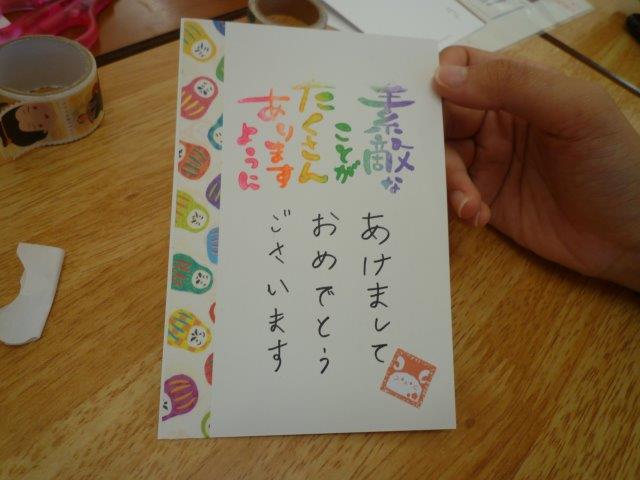 素敵な
ことが
たくさん
あります
ように
あけまして
おめでとう
ございます